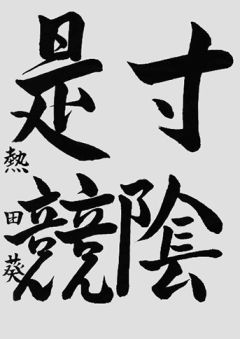 寸陰
是競
熱田葵